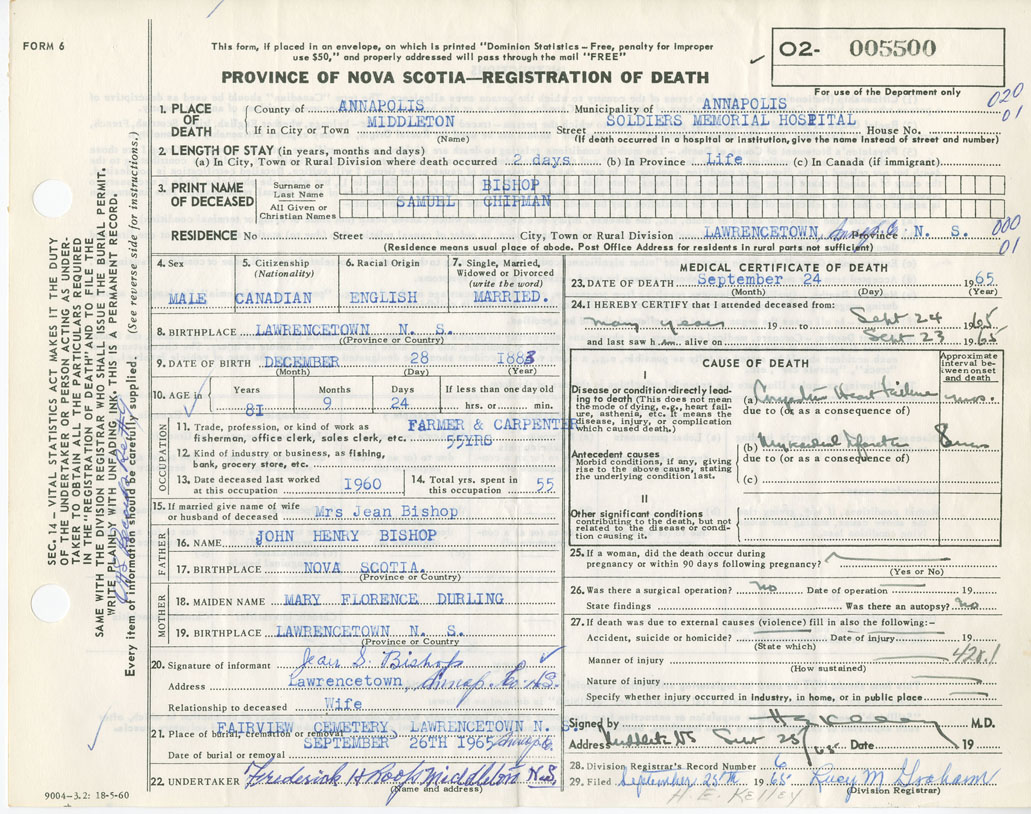 FORM 6
This form, if placed in an envelope, on which is printed "Dominion Statistics – Free, penalty for improper
use $50," and properly addressed will pass through the mail "FREE"
PROVINCE OF NOVA SCOTIA—REGISTRATION OF DEATH
02- 005500
For use of the Department only
020
01
1. PLACE OF DEATH
County of ANNAPOLIS Municipality of ANNAPOLIS
If in City or Town MIDDLETON Street SOLDIERS MEMORIAL HOSPITAL House No.
(Name) (If death occurred in a hospital or institution, give the name instead of street and number)
2. LENGTH OF STAY (in years, months and days)
(a) In City, Town or Rural Division where death occurred 2 days (b) In Province Life (c) In Canada (if immigrant)
3. PRINT NAME OF DECEASED
Surname or Last Name BISHOP
All Given or Christian Names SAMUEL CHIPMAN
RESIDENCE No Street City, Town or Rural Division LAWRENCETOWN, Annap Co. Province N. S.
(Residence means usual place of abode. Post Office Address for residents in rural parts not sufficient)
000
01
4. Sex MALE
5. Citizenship (Nationality) CANADIAN
6. Racial Origin ENGLISH
7. Single, Married, Widowed or Divorced (write the word) MARRIED.
8. BIRTHPLACE LAWRENCETOWN N. S.
(Province or Country)
9. DATE OF BIRTH DECEMBER 28 1883
(Month) (Day) (Year)
10. AGE in Years 81 Months 9 Days 24 If less than one day old hrs. or min.
OCCUPATION
11. Trade, profession, or kind of work as fisherman, office clerk, sales clerk, etc. FARMER & CARPENTER
55YRS
12. Kind of industry or business, as fishing, bank, grocery store, etc.
13. Date deceased last worked at this occupation 1960
14. Total yrs. spent in this occupation 55
15. If married give name of wife or husband of deceased Mrs Jean Bishop
FATHER
16. NAME JOHN HENRY BISHOP
17. BIRTHPLACE NOVA SCOTIA.
(Province or Country)
MOTHER
18. MAIDEN NAME MARY FLORENCE DURLING
19. BIRTHPLACE LAWRENCETOWN N. S.
(Province or Country)
20. Signature of informant Jean S. Bishop
Address Lawrencetown, Annap. Co. N.S.
Relationship to deceased Wife
21. Place of burial, cremation or removal FAIRVIEW CEMETERY, LAWRENCETOWN N. S.
Date of burial or removal SEPTEMBER 26TH 1965 Annap Co.
22. UNDERTAKER Frederick H Roop Middleton N.S.
(Name and address)
MEDICAL CERTIFICATE OF DEATH
23. DATE OF DEATH September 24 1965
(Month) (Day) (Year)
24. I HEREBY CERTIFY that I attended deceased from:
many years 19 to Sept 24 1965
and last saw him alive on Sept 23 1965
CAUSE OF DEATH
Approximate interval between onset and death
I
Disease or condition directly leading to death (This does not mean the mode of dying, e.g., heart failure, asthenia, etc. It means the disease, injury, or complication which caused death.)
(a) Congestive Heart Failure mos.
due to (or as a consequence of)
Antecedent causes
Morbid conditions, if any, giving rise to the above cause, stating the underlying condition last.
(b) Myocardial Infarct
due to (or as a consequence of)
(c)
II
Other significant conditions
contributing to the death, but not related to the disease or condition causing it.
25. If a woman, did the death occur during pregnancy or within 90 days following pregnancy?
(Yes or No)
26. Was there a surgical operation? no Date of operation
State findings Was there an autopsy? no
27. If death was due to external causes (violence) fill in also the following:-
Accident, suicide or homicide? Date of injury 19
(State which)
Manner of injury 420.1
(How sustained)
Nature of injury
Specify whether injury occurred in industry, in home, or in public place
Signed by H E Kelley M.D.
Address Middleton NS Sept 25/65 Date 19
28. Division Registrar's Record Number 6
29. Filed September 25th 1965 Lucy M. Graham
(Division Registrar)
H. E. KELLEY
SEC. 14 – VITAL STATISTICS ACT MAKES IT THE DUTY
OF THE UNDERTAKER OR PERSON ACTING AS UNDER-
TAKER TO OBTAIN ALL THE PARTICULARS REQUIRED
IN THE "REGISTRATION OF DEATH" AND TO FILE THE
SAME WITH THE DIVISION REGISTRAR WHO SHALL ISSUE THE BURIAL PERMIT.
WRITE PLAINLY WITH UNFADING INK. THIS IS A PERMANENT RECORD.
Every item of information should be carefully supplied. (See reverse side for instructions.)
9004–3.2: 18-5-60